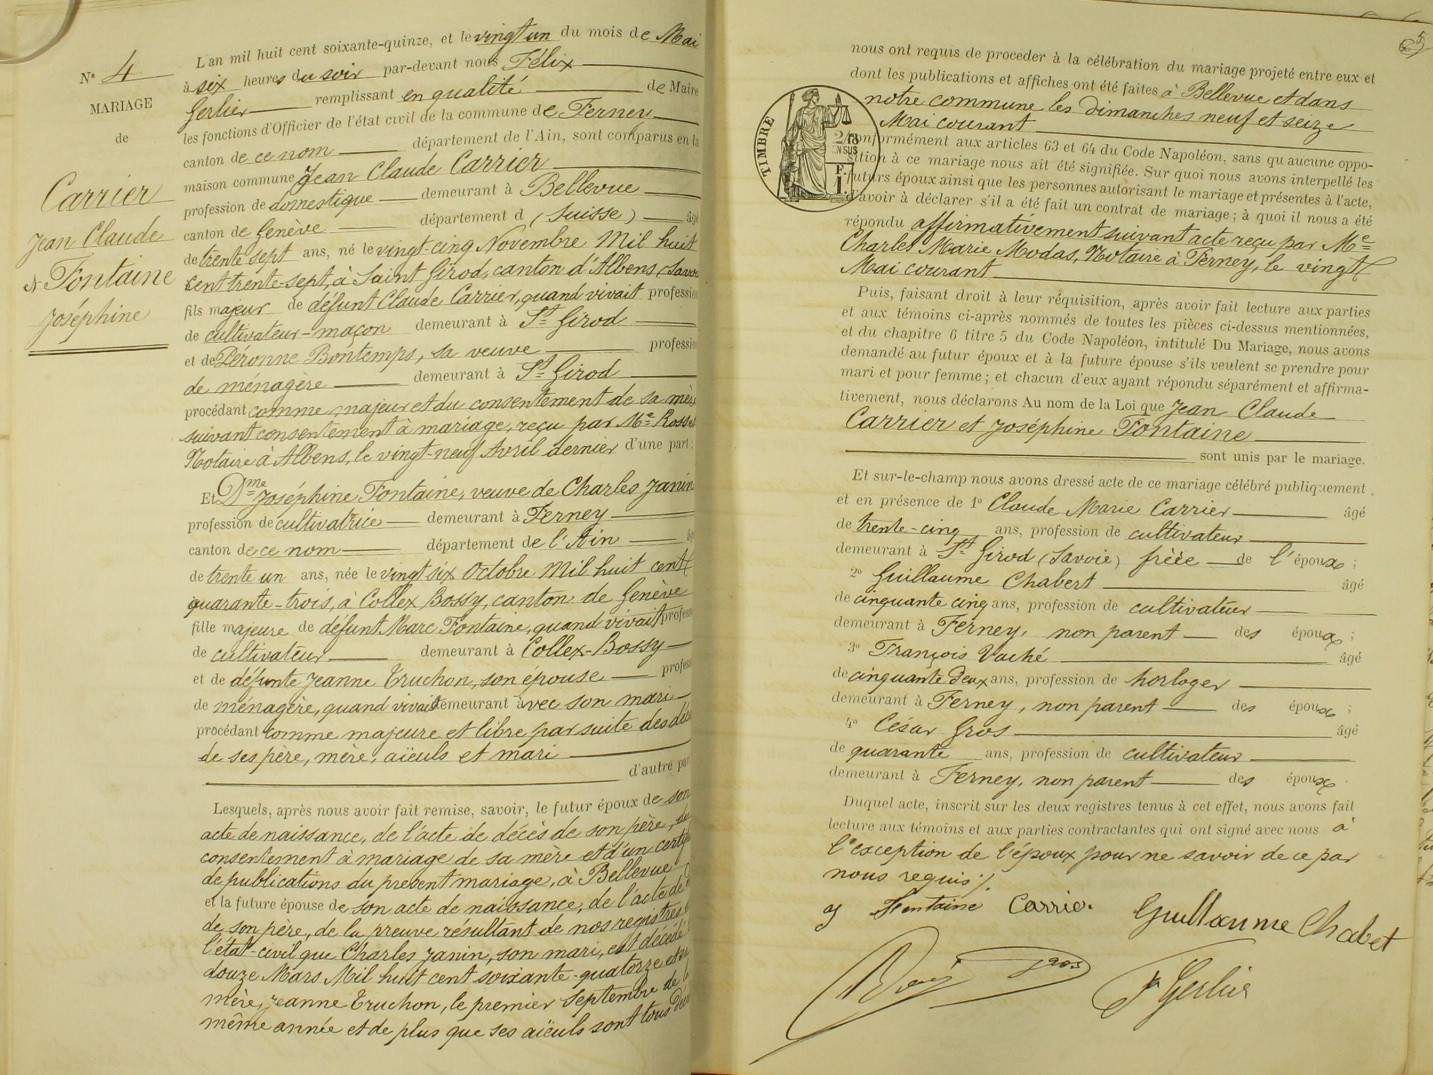 Nº 4
MARIAGE
de
Carrier
Jean Claude
& Fontaine
Joséphine
L'an mil huit cent soixante-quinze, et le vingt un du mois de Mai
à six heures du soir par-devant nous Félix
Gerlier remplissant en qualité de Maire
les fonctions d'Officier de l'état civil de la commune de Ferney
canton de ce nom département de l'Ain, sont comparus en la
maison commune Jean Claude Carrier
profession de domestique demeurant à Bellevue
canton de Genève département d (Suisse) âgé
de trente sept ans, né le vingt-cinq Novembre Mil huit
cent trente-sept, à Saint Girod, canton d'Albens, (Savoie
fils majeur de défunt Claude Carrier, quand vivait profession
de cultivateur-maçon demeurant à St Girod
et de Péronne Bontemps, sa veuve profession
de ménagère demeurant à St Girod
procédant comme majeur et du consentement de sa mère
suivant consentement à mariage, reçu par Me Rosset
Notaire à Albens, le vingt-neuf Avril dernier d'une part;
Et Dme Joséphine Fontaine, veuve de Charles Janin
profession de cultivatrice demeurant à Ferney
canton de ce nom département de l'Ain
de trente un ans, née le vingt six Octobre Mil huit cent
quarante-trois, à Collex Bossy, canton de Genève
fille majeure de défunt Marc Fontaine, quand vivait profess
de cultivateur demeurant à Collex-Bossy
et de défunte Jeanne Truchon, son épouse profess
de ménagère, quand vivait demeurant avec son mari
procédant comme majeure et libre par suite des décè
de ses père, mère, aïeuls et mari
d'autre par
Lesquels, après nous avoir fait remise, savoir, le futur époux de son
acte de naissance, de l'acte de décès de son père, du
consentement à mariage de sa mère et d'un certif
de publications du présent mariage, à Bellevue
et la future épouse de son acte de naissance, de l'acte de
de son père, de la preuve résultant de nos registres
l'état-civil que Charles Janin, son mari, est décédé
douze Mars Mil huit cent soixante-quatorze et sa
mère, Jeanne Truchon, le premier Septembre de la
même année et de plus que ses aïeuls sont tous
65
nous ont requis de procéder à la célébration du mariage projeté entre eux et
dont les publications et affiches ont été faites à Bellevue et dans
notre commune les dimanches neuf et seize
Mai courant
TIMBRE
conformément aux articles 63 et 64 du Code Napoléon, sans qu'aucune oppo-
sition à ce mariage nous ait été signifiée. Sur quoi nous avons interpellé les
futurs époux ainsi que les personnes autorisant le mariage et présentes à l'acte,
d'avoir à déclarer s'il a été fait un contrat de mariage; à quoi il nous a été
répondu affirmativement suivant acte reçu par Me
Charles Marie Modas, Notaire à Ferney, le vingt
Mai courant
Puis, faisant droit à leur réquisition, après avoir fait lecture aux parties
et aux témoins ci-après nommés de toutes les pièces ci-dessus mentionnées,
et du chapitre 6 titre 5 du Code Napoléon, intitulé Du Mariage, nous avons
demandé au futur époux et à la future épouse s'ils veulent se prendre pour
mari et pour femme; et chacun d'eux ayant répondu séparément et affirma-
tivement, nous déclarons Au nom de la Loi que Jean Claude
Carrier et Joséphine Fontaine
sont unis par le mariage.
Et sur-le-champ nous avons dressé acte de ce mariage célébré publiquement
et en présence de 1º Claude Marie Carrier âgé
de trente-cinq ans, profession de cultivateur
demeurant à St Girod (Savoie) frère de l'époux;
2º Guillaume Chabert âgé
de cinquante cinq ans, profession de cultivateur
demeurant à Ferney, non parent des époux;
3º François Vaché âgé
de cinquante deux ans, profession de horloger
demeurant à Ferney, non parent des époux;
4º César Gros âgé
de quarante ans, profession de cultivateur
demeurant à Ferney, non parent des époux.
Duquel acte, inscrit sur les deux registres tenus à cet effet, nous avons fait
lecture aux témoins et aux parties contractantes qui ont signé avec nous à
l'exception de l'époux pour ne savoir de ce par
nous requis.
Fontaine Carrier Guillaume Chabert
F Gerlier